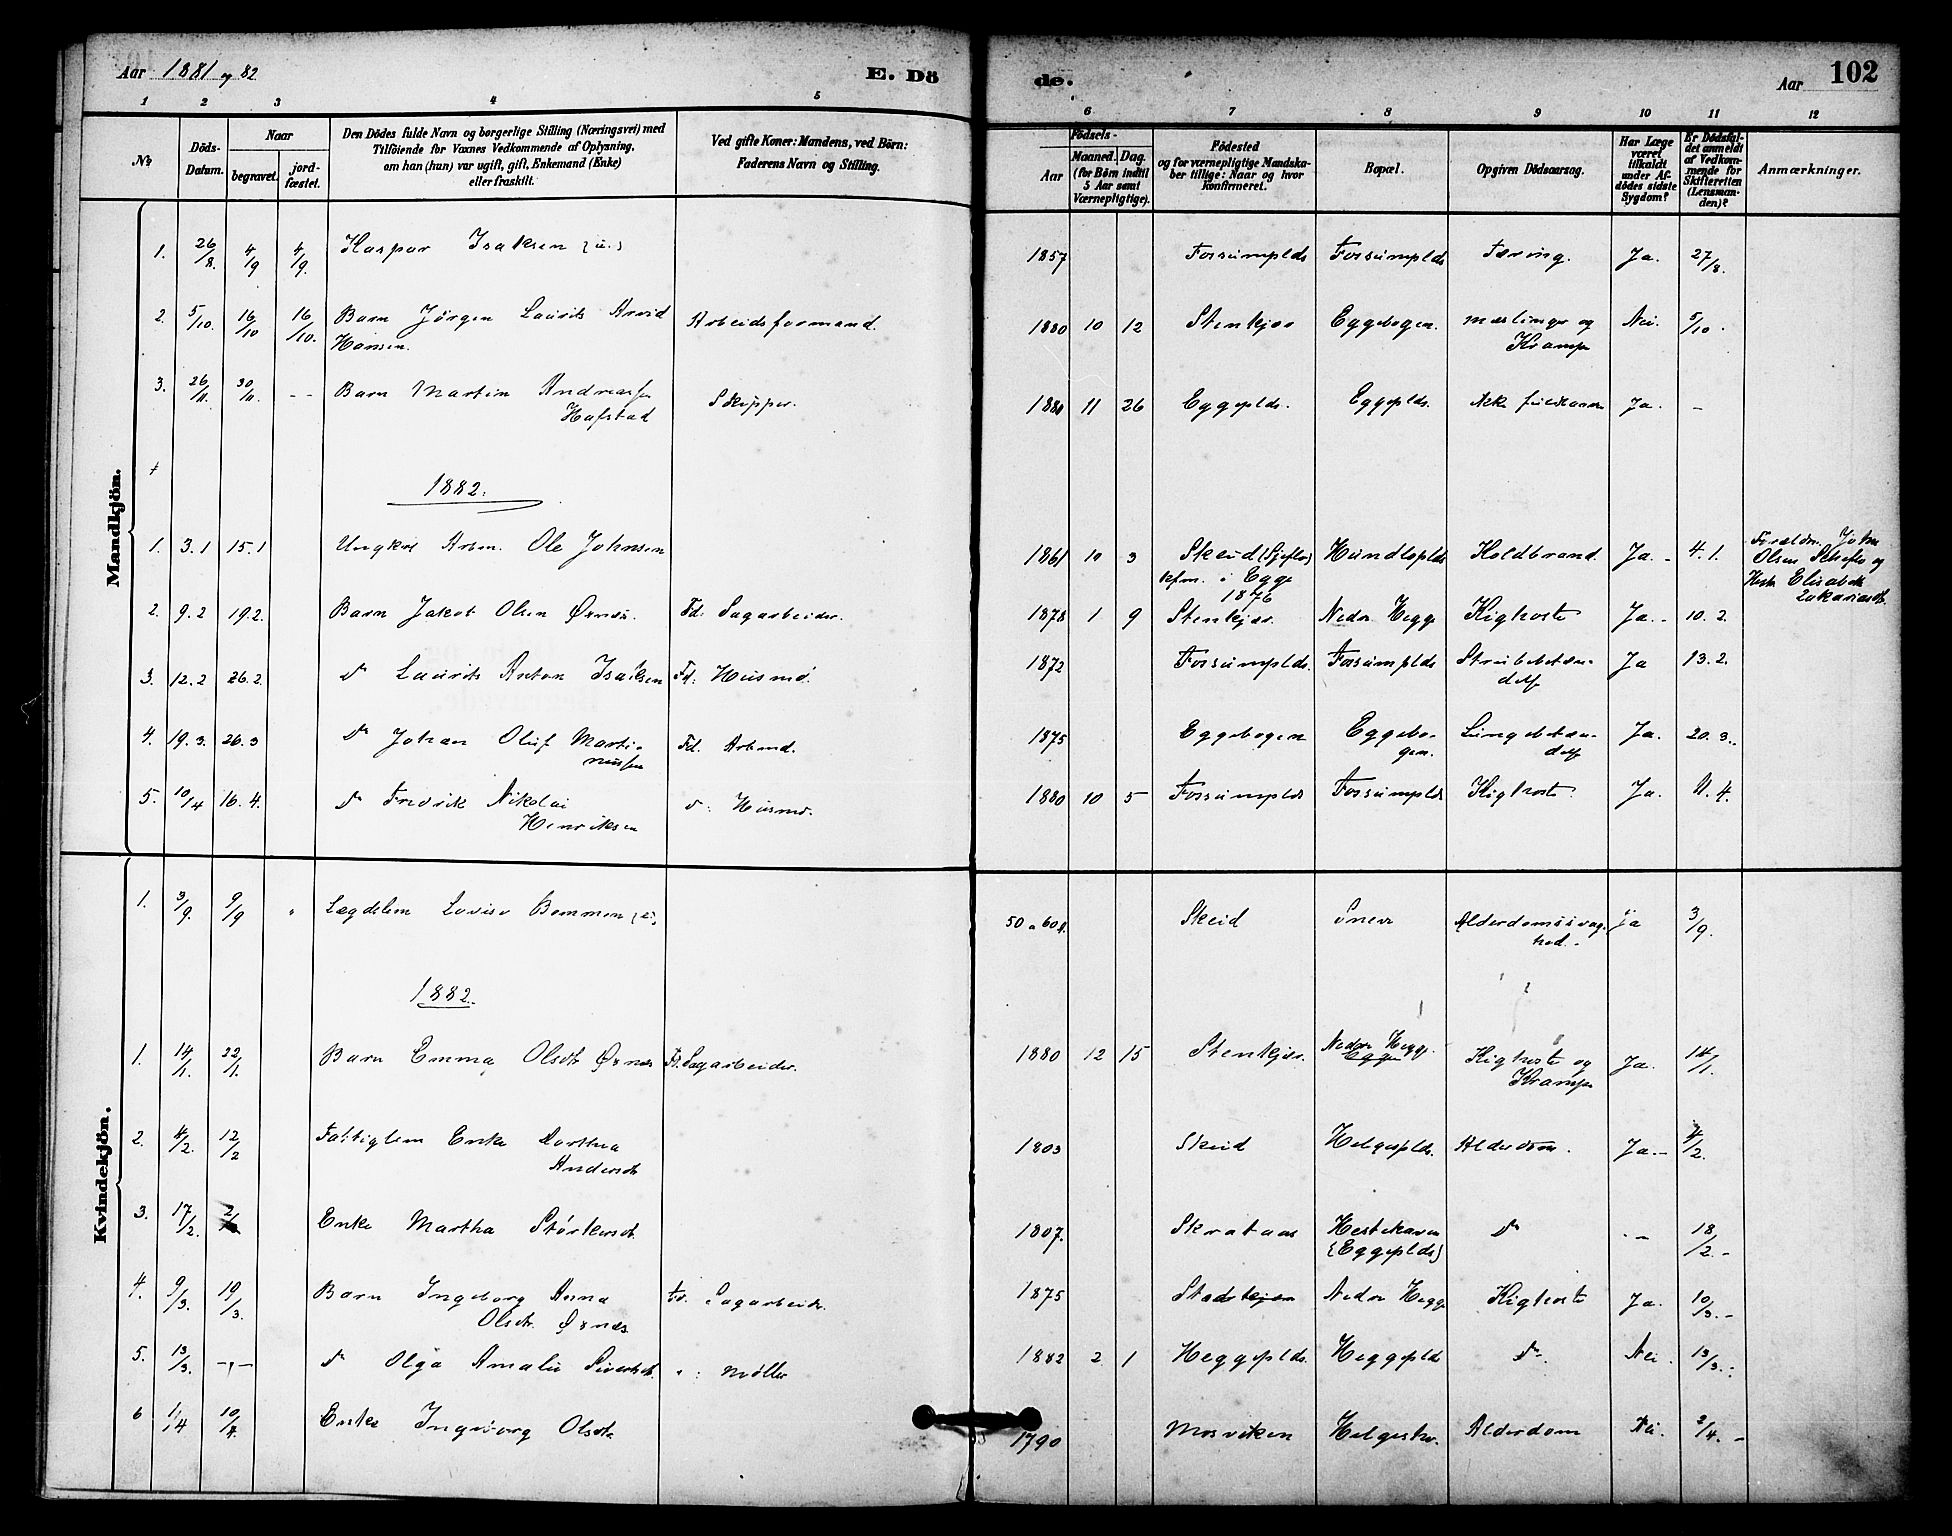 Aar 1881 og 82
E. Dö
de.
Aar
102
1 2 3 4 5 6 7 8 9 10 11 12
No
Döds-Datum.
Naar
begravet.
jord-fæstet.
Den Dödes fulde Navn og borgerlige Stilling (Næringsvei) med
Tilföiende for Voxnes Vedkommende af Oplysning,
om han (hun) var ugift, gift, Enkemand (Enke)
eller fraskilt.
Ved gifte Koner: Mandens, ved Börn:
Faderens Navn og Stilling.
Födsels-
Aar
Maaned. Dag.
(for Börn indtil
5 Aar samt
Værnepligtige).
Födested
og for værnepligtige Mandska-
ber tillige: Naar og hvor
konfirmeret.
Bopæl.
Opgiven Dödsaarsag.
Har Læge
været
tilkaldt
under Af-
dödes sidste
Sygdom?
Er Dödsfal-
det anmeldt
af Vedkom-
mende for
Skifteretten
(Lensman-
den)?
Anmærkninger.
Mandkjön.
1. 26/8. 4/9 4/9. Kaspar Isaksen (u.) 1857 Forsumplds Forsumplds Tæring. Ja. 27/8.
2. 5/10. 16/10 16/10. Barn Jörgen Laurits Arvid Arbeidsformand. 1880 10 12 Stenkjær Eggebogen. Mæslinger og Nei. 5/10.
Hansen. Krampe
3. 26/11. 30/11. - - Barn Martin Andreassen Skipper. 1880 11 26 Eggeplds. Eggeplds. Ikke fuldbaaren Ja. -
Hafstad
4
1882.
1. 3.1 15.1 Ungkrl Arbm. Ole Johnsen 1861 10 3 Skeid (Skjefte) Hundloplds Koldbrand Ja - 4.1. Forældre John
kfm. i Egge Olsen og
1876 Elisabeth
Zakariasdt.
2. 9.2 19.2. Barn Jakob Olsen Ørnæs. Fd. Sagarbeider. 1878 1 9 Stenkjær. Nedre Hegge Kighoste Ja - 10.2.
3. 12.2 26.2. do Laurits Anton Isaksen Fd: Husmd. 1872 Forsumplds. Forsumplds Strubebetæn- Ja 13.2.
delse
4. 19.3. 26.3 do Johan Oluf Marti- Fd. Arbmd. 1875 Eggebogen Eggebo- Lungebetæn- Ja. 20.3.
nussen gen. delse
5. 10/4 16.4. do Fredrik Nikolai do: Husmd. 1880 10 5 Forsumplds Forsumplds Kighoste Ja. 11.4.
Henriksen
Kvindekjön.
1. 3/9. 9/9 " Lægdslem Lovise Bemmen (u.) 50 a 60 A. Skeid Sneve Alderdomssvag- Ja 3/9.
hed.
1882.
1. 14/1. 22/1. Barn Emma Olsdtr Ørnæs Fd. Sagarbeider. 1880 12 15 Stenkjær. Nedre Hegge. Kighoste og Ja. 14/1.
Eggen Krampe
2. 4/2. 12/2 Fattiglem Enke Dorthea 1803 Skeid Helgesplds. Alderdom. Ja. - 4/2.
Andersdt
3. 17/2. Enke Martha Störkersdt 1807. Skrataas Hestehaven do - 18/2. -
(Eggeplds)
4. 9/3. 19/3. Barn Ingeborg Anna Fd. Sagarbeidr. 1875 Stadskjær Nedre Hegge Kighoste Ja. 10/3. -
Olsdtr. Ørnæs.
5. 13/3. -"- do Olga Amalie Sivertsdt. " : Møller 1882 2 1 Heggeplds. Heggeplds do. Nei. 13/3.
6 1/4 10/4. Enke Ingeborg Olsdtr 1790 Mosviken Helgestu. Alderdom Nei. 2/4. -